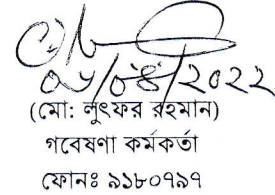 ০৬/০৪/2022
(মো: লুৎফর রহমান)
গবেষণা কর্মকর্তা
ফোনঃ ৯১৮০৭৯৭